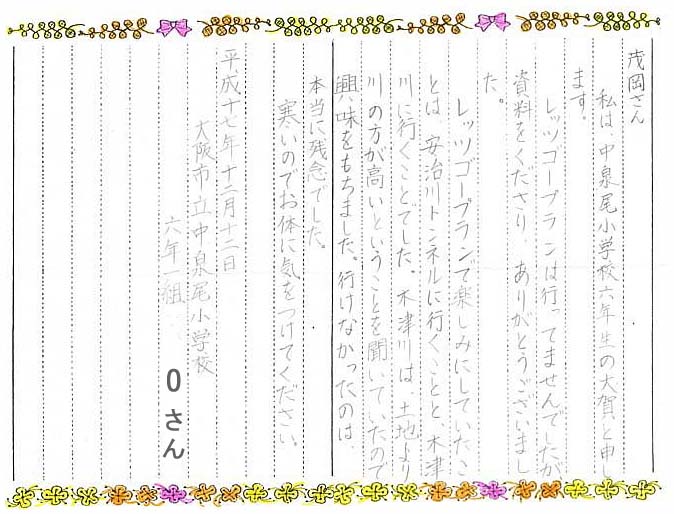 茂岡さん
私は、中泉尾小学校六年生の大賀と申し
ます。
レッツゴープランは行ってませんでしたが
資料をくださり、ありがとうございまし
た。
レッツゴープランで楽しみにしていたこ
とは、安治川トンネルに行くことと、木津
川に行くことでした。木津川は、土地より
川の方が高いということを聞いていたので
興味をもちました。行けなかったのは、
本当に残念でした。
寒いのでお体に気をつけてください。
平成十七年十二月十二日
大阪市立中泉尾小学校
六年一組
Oさん